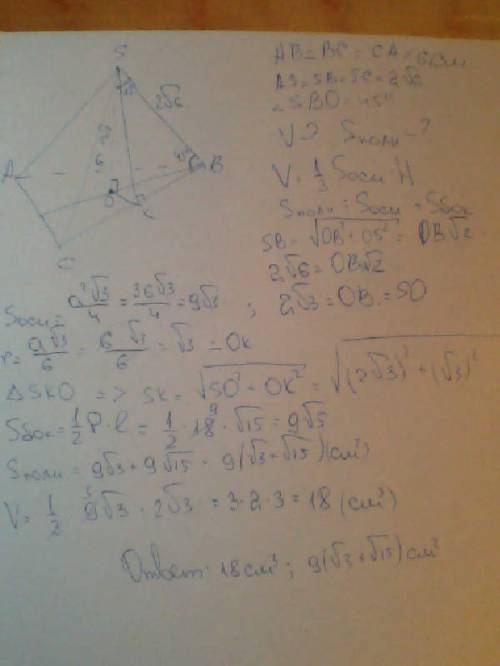 S
2√6
A
6
45°
B
O
K
C
AB = BC = CA = 6см
AS = SB = SC = 2√6
∠SBO = 45°
V-? Sполн - ?
V = 1/3 Sосн H
Sполн = Sосн + Sбок
SB = √(OB² + OS²) = OB√2
2√6 = OB√2
Sосн = a²√3/4 = 36√3/4 = 9√3 ; 2√3 = OB = SO
r = a√3/6 = 6√3/6 = √3 = OK
△SKO => SK = √(SO² + OK²) = √((2√3)² + (√3)²
Sбок = 1/2 P·l = 1/2 · 18 · √15 = 9√5
9
Sполн = 9√3 + 9√15 = 9(√3 + √15) (см²)
V = 1/2 9√3 · 2√3 = 3·2·3 = 18 (см³)
3
Ответ: 18 см³ ; 9(√3 + √15) см²